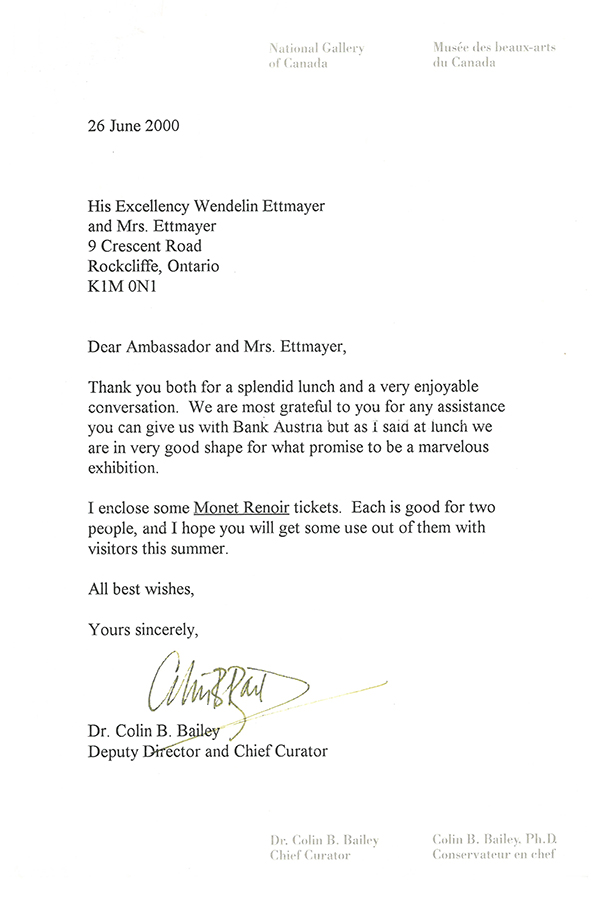 National Gallery
of Canada
Musée des beaux-arts
du Canada
26 June 2000
His Excellency Wendelin Ettmayer
and Mrs. Ettmayer
9 Crescent Road
Rockcliffe, Ontario
K1M 0N1
Dear Ambassador and Mrs. Ettmayer,
Thank you both for a splendid lunch and a very enjoyable
conversation. We are most grateful to you for any assistance
you can give us with Bank Austria but as I said at lunch we
are in very good shape for what promise to be a marvelous
exhibition.
I enclose some Monet Renoir tickets. Each is good for two
people, and I hope you will get some use out of them with
visitors this summer.
All best wishes,
Yours sincerely,
Dr. Colin B. Bailey
Deputy Director and Chief Curator
Dr. Colin B. Bailey
Chief Curator
Colin B. Bailey, Ph.D.
Conservateur en chef